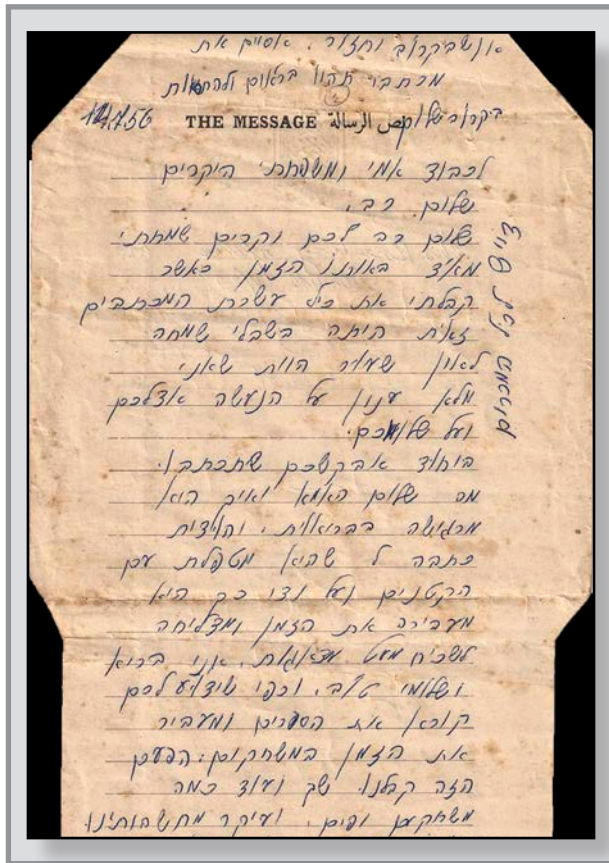 ונשביקרוב וחזור. אסיים את
מכתבי בראות ולהתראות
ביקרוב שלום
THE MESSAGE نص الرسالة
לכבוד אמי ומשפחתי היקרים
שלום רב.
שלום רב לכם יקרים שמחתי
מאד באותו הזמן כאשר
קבלתי את כל עשרת המכתבים
זאת היתה בשבלי שמחה
שאני
מלא ענין על הנעשה אצלכם
ועל שלומכם.
ביחוד אבקשכם שתכתבו
מה שלום האמא ואיך היא
מרגישה בבריאות.
כתבה ל שהיא מטפלת עם
הקטנים ועל ידי כך היא
מעבירה את הזמן ומצליחה
לשכיח מעט מדאגות. אני בריא
ושלומי טוב. וכפי שידוע לכם
קורא את הספרים ומעביר
את הזמן במשחקים. הפעם
הזה קבלנו שך ועוד כמה
משחקים יפים. ועיקר